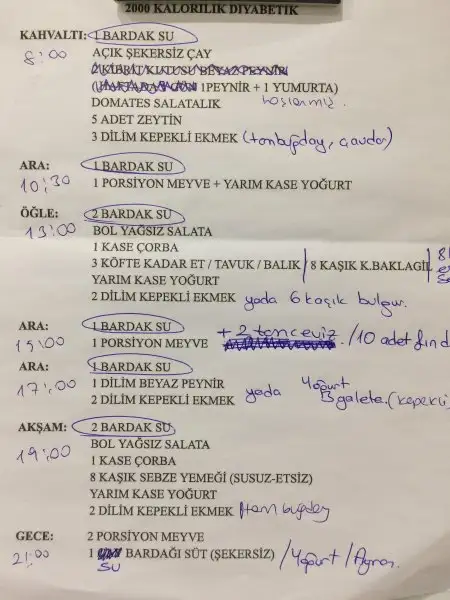 2000 KALORİLİK DİYABETİK
KAHVALTI: 1 BARDAK SU
8:00 AÇIK ŞEKERSİZ ÇAY
2 KİBRİT KUTUSU BEYAZ PEYNİR
1PEYNİR + 1 YUMURTA)
DOMATES SALATALIK
5 ADET ZEYTİN
3 DİLİM KEPEKLİ EKMEK (tambuğday, çavdar)
ARA: 1 BARDAK SU
10:30 1 PORSİYON MEYVE + YARIM KASE YOĞURT
ÖĞLE: 2 BARDAK SU
13:00 BOL YAĞSIZ SALATA
1 KASE ÇORBA
3 KÖFTE KADAR ET / TAVUK / BALIK / 8 KAŞIK K.BAKLAGİL
YARIM KASE YOĞURT
2 DİLİM KEPEKLİ EKMEK yada 6 kaşık bulgur.
ARA: 1 BARDAK SU
15:00 1 PORSİYON MEYVE + 2 tam ceviz. /10 adet fınd
ARA: 1 BARDAK SU
17:00 1 DİLİM BEYAZ PEYNİR
2 DİLİM KEPEKLİ EKMEK yada yoğurt 3 galeta.(kepekli
AKŞAM: 2 BARDAK SU
19:00 BOL YAĞSIZ SALATA
1 KASE ÇORBA
8 KAŞIK SEBZE YEMEĞİ (SUSUZ-ETSİZ)
YARIM KASE YOĞURT
2 DİLİM KEPEKLİ EKMEK tam buğday
GECE: 2 PORSİYON MEYVE
21:00 1 SU BARDAĞI SÜT (ŞEKERSİZ) / Yoğurt / Ayran.